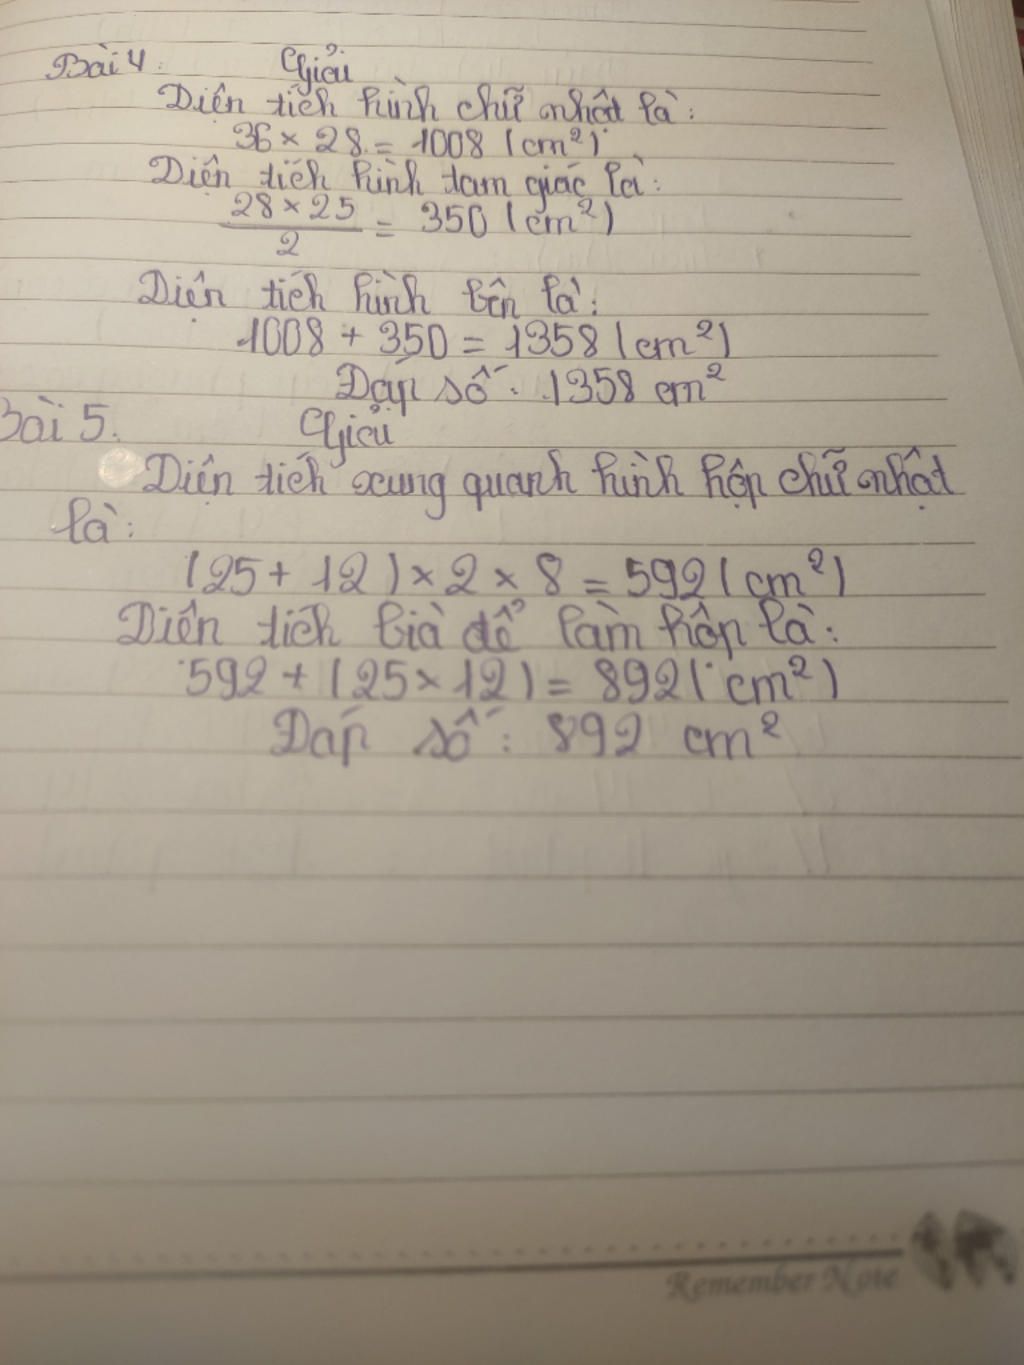 Bài 4. Giải
Diện tích hình chữ nhật là:
36 × 28 = 1008 (cm²)
Diện tích hình tam giác là:
28 × 25
= 350 (cm²)
2
Diện tích hình bên là:
1008 + 350 = 1358 (cm²)
Đáp số: 1358 cm²
Bài 5. Giải
Diện tích xung quanh hình hộp chữ nhật
là:
(25 + 12) × 2 × 8 = 592 (cm²)
Diện tích bìa để làm hộp là:
592 + (25 × 12) = 892 (cm²)
Đáp số: 892 cm²
Remember Note